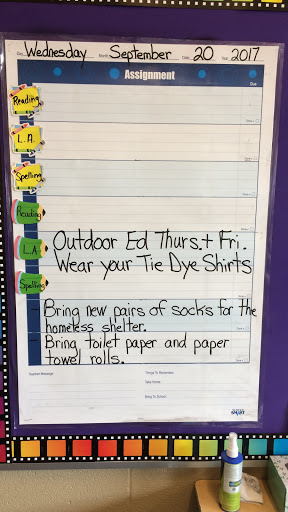 Day Wednesday Month September Date 20 Year 2017
Assignment
Due
Reading
L.A.
Spelling
Reading
L.A.
Spelling
Outdoor Ed Thurs. + Fri.
Wear your Tie Dye Shirts
- Bring new pairs of socks for the
homeless shelter.
- Bring toilet paper and paper
towel rolls.
Teacher Message:
Things To Remember:
Take Home:
Bring To School: